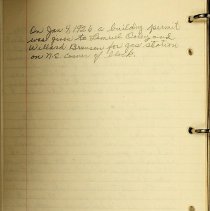 On Jan 9, 1926 a building permit
was given to Samuel Corey and
Willard Brunson for gas station
on N.E. corner of block.